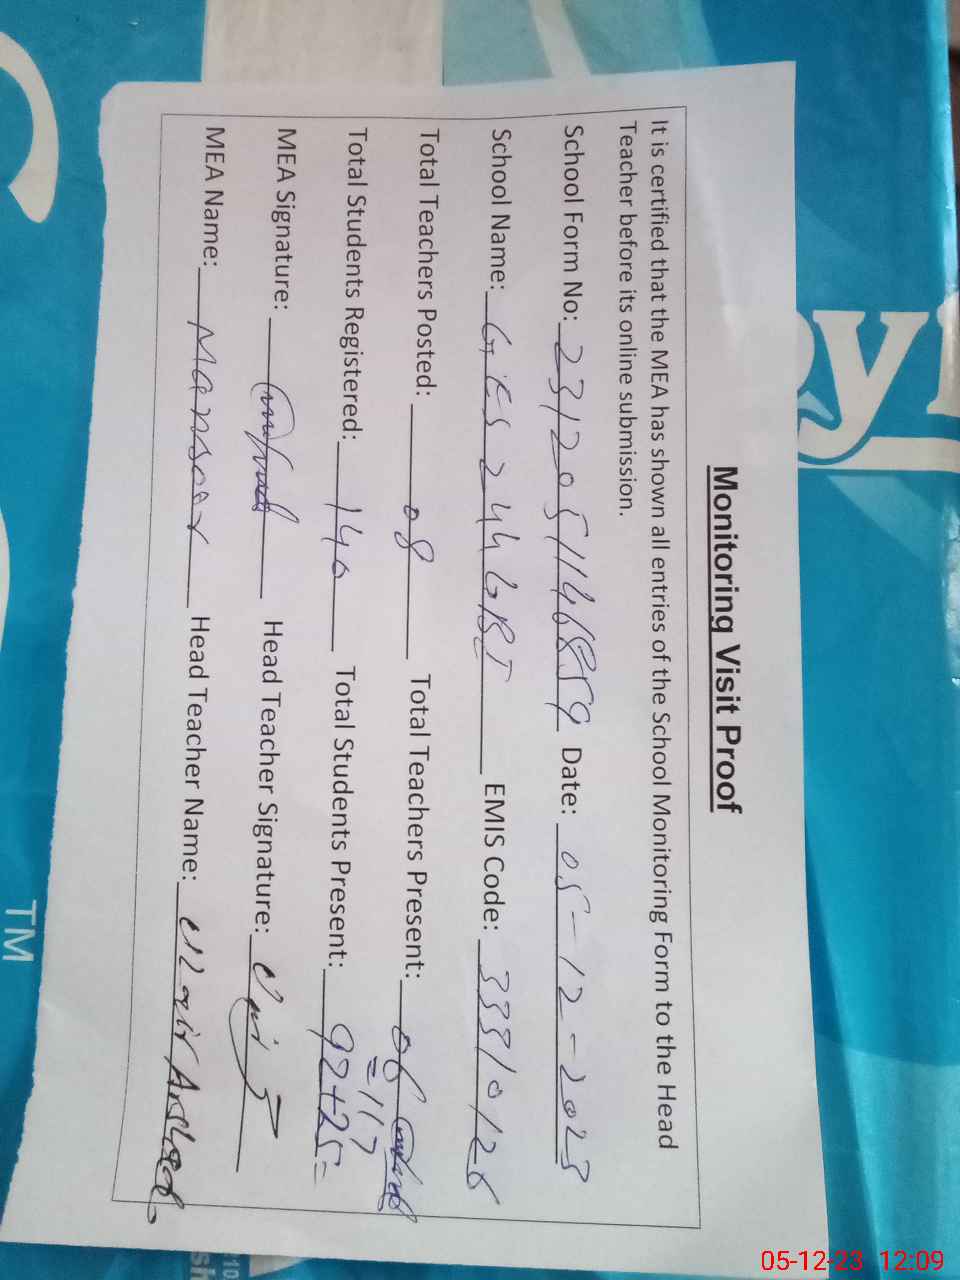 Monitoring Visit Proof
It is certified that the MEA has shown all entries of the School Monitoring Form to the Head
Teacher before its online submission.
School Form No: 23120511468559 Date: 05-12-2023
School Name: GES 244 GB EMIS Code: 33310126
Total Teachers Posted: 08 Total Teachers Present: 06
=117
Total Students Registered: 140 Total Students Present: 92+25=
MEA Signature: Head Teacher Signature:
MEA Name: Mansoor Head Teacher Name: Uzair Arshad
TM
05-12-23 12:09